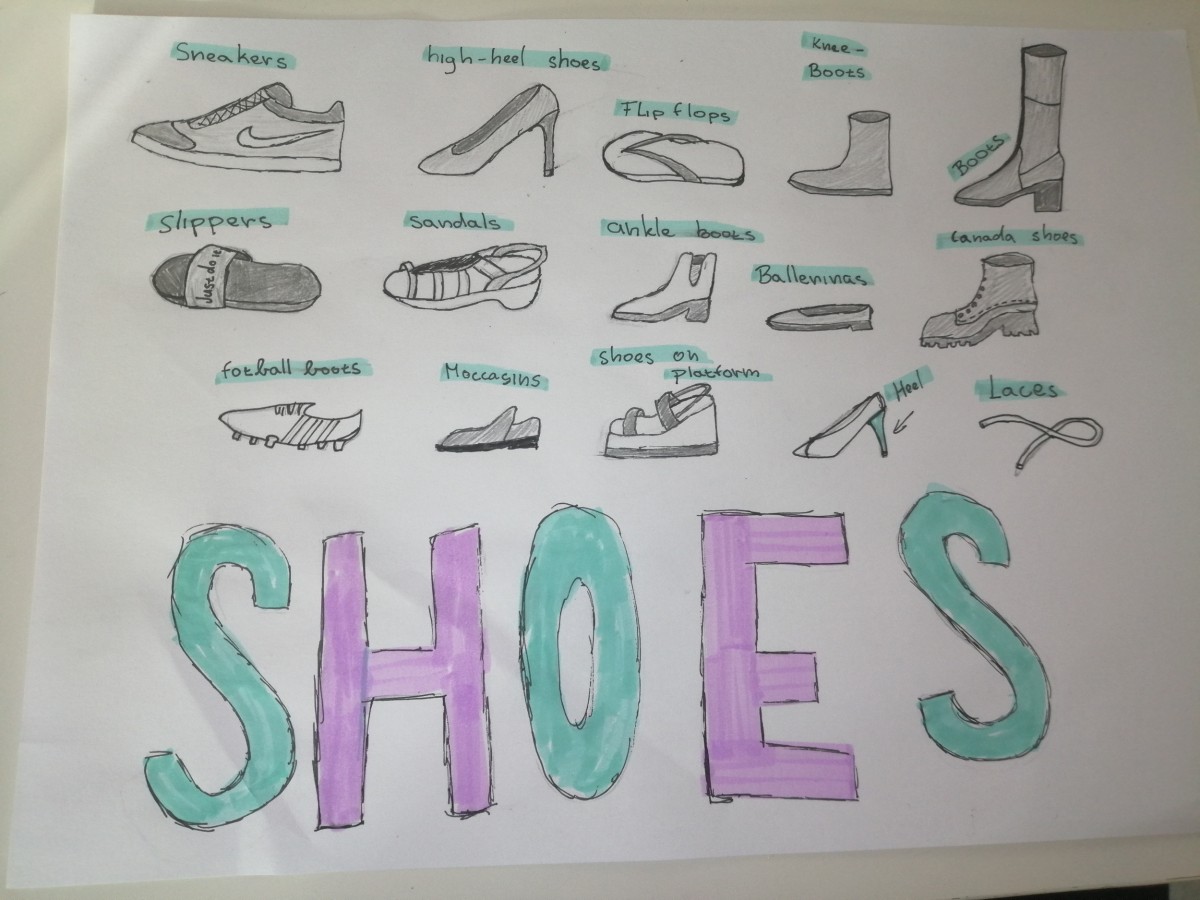 Sneakers
high-heel shoes
Flip flops
Knee-
Boots
Boots
Slippers
Just do it
sandals
ankle boots
Ballerinas
Canada shoes
fotball boots
Moccasins
shoes on
platform
Heel
Laces
SHOES